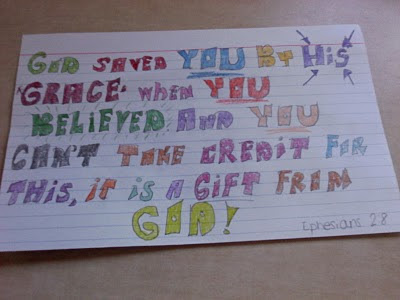 GOD SAVED YOU BY HiS
"GRACE" WHEN YOU
BELiEVED. AND YOU
CAN'T TAKE CREDiT FOR
THiS, iT iS A GiFT FROM
GOD!
Ephesians 2:8